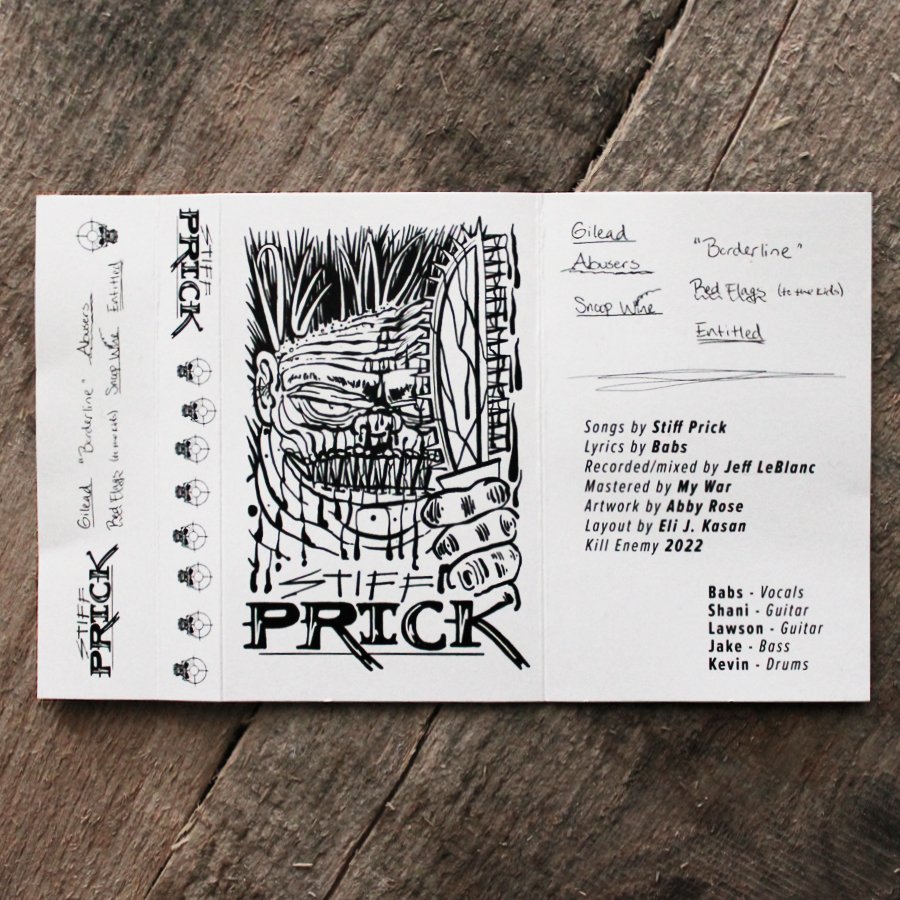 Gilead "Borderline" Abusers
Red Flags (to the kids) Snoop Wine Entitled
STIFF
PRICK
STIFF
PRICK
STIFF
PRICK
Gilead
Abusers
Snoop Wine
"Borderline"
Red Flags (to the kids)
Entitled
Songs by Stiff Prick
Lyrics by Babs
Recorded/mixed by Jeff LeBlanc
Mastered by My War
Artwork by Abby Rose
Layout by Eli J. Kasan
Kill Enemy 2022
Babs - Vocals
Shani - Guitar
Lawson - Guitar
Jake - Bass
Kevin - Drums